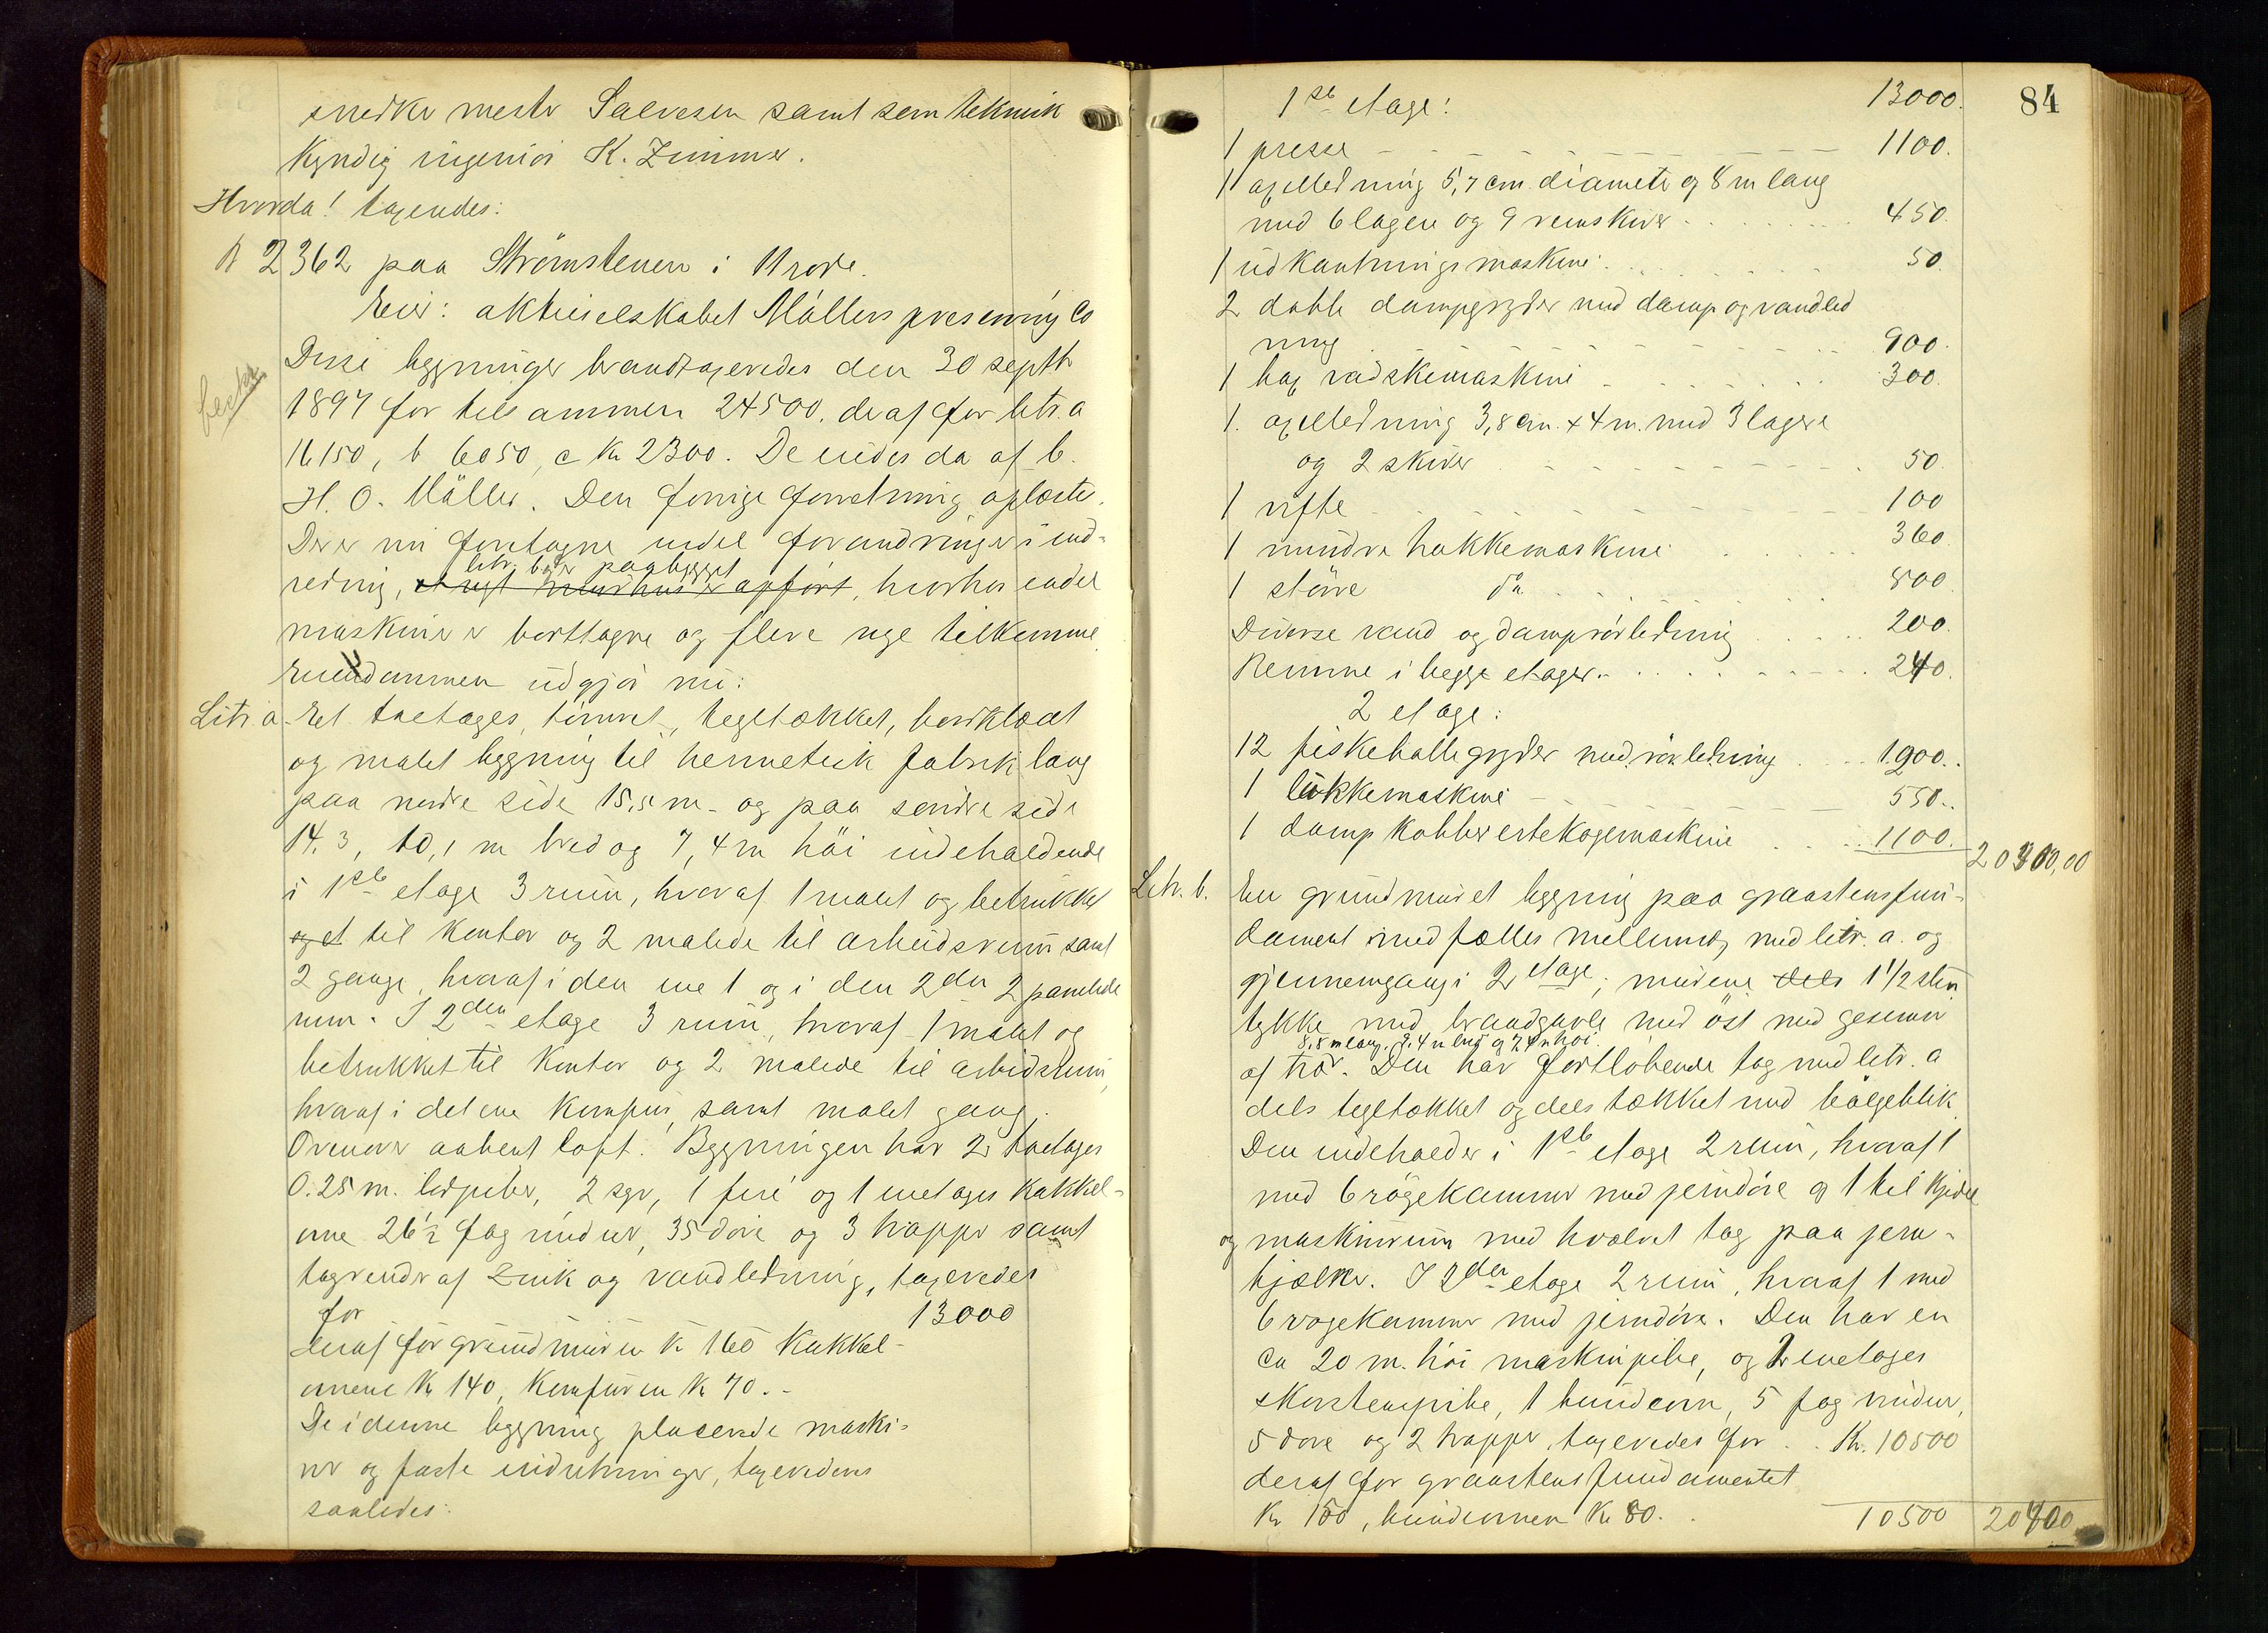 snedker mester Salvesen samt som teknisk
kyndig ingeniør K. Zimmer.
Hvorda! taxeredes:
N 2362 paa Strømstenen i 11 rode.
Eier: aktieselskabet Møllers presenning Co
Disse bygninger brandtaxeredes den 30 septbr
1897 for tilsammen 24500, deraf for litr. a
16150, b 6050, c Kr 2300. De eiedes da af
H. O. Møller. Den forrige forretning oplæstes.
Der er nu foretagne endel forandringer i ind-
litr. b er paabygget
redning, et nyt murhus er opført, hvorhos endel
maskiner er borttagne og flere nye tilkomne.
Eiendommen udgjør nu:
Litr. a. Et toetages, tømret, tegltækket, bordklædt
og malet bygning til hermetisk fabrik lang
paa nordre side 15,5 m. og paa søndre side
14,3, 10,1 m bred og 7,4 m høi indeholdende
i 1ste etage 3 rum, hvoraf 1 malet og betrukket
og et til kontor og 2 malede til arbeidsrum samt
2 gange, hvoraf i den ene 1 og i den 2den 2 panelede
rum. I 2den etage 3 rum, hvoraf 1 malet og
betrukket til kontor og 2 malede til arbeidsrum,
hvoraf i det ene komfur, samt malet gang.
Ovenover aabent loft. Bygningen har 2 toetages
0.25 m. ledpiber, 2 sgr, 1 fire og 1 enetages kakkel-
ovne 26 1/2 fag vinduer, 35 døre og 3 trapper samt
tagrender af zink og vandledning, taxeredes
for 13000
deraf for grundmuren Kr 160 kakkel-
ovnene Kr 140, komfuren Kr 70.-
De i denne bygning placerede maski-
ner og faste indretninger, taxeredes
saaledes:
84
1ste etage: 13000.
1 presse 1100.
1 axelledning 5,7 cm. diameter og 8 m lang
med 6 lagere og 9 remskiver 450.
1 udkantningsmaskine 50.
2 doble dampgryder med damp og vandled
ning 900.
1 vadskemaskine 300.
1. axelledning 3,8 cm. x 4 m. med 3 lagere
og 2 skiver 50.
1 vifte 100
1 mindre hakkemaskine 360.
1 større do 800.
Diverse vand og damprørledning 200.
Remme i begge etager. 240.
2 etage:
12 fiskebollegryder med rørledning 1900.
1 lukkemaskine 550.
1 damp kobber ertekogemaskine 1100. 20100,00
Litr. b. En grundmuret bygning paa graastensfun-
dament med fælles mellemvæg med litr. a. og
gjennemgang i 2 etage; murene dels 1 1/2 sten
tykke med brandgavle mod øst med gesimser
8,8 m lang, 9,4 m bred og 7,4 m høi.
af træ. Den har fortløbende tag med litr. a
dels tegltækket og dels tækket med bølgeblik.
Den indeholder i 1ste etage 2 rum, hvoraf 1
med 6 røgekammer med jerndøre og 1 til kjedel
og maskinrum med hvælvet tag paa jern-
bjælker. I 2den etage 2 rum, hvoraf 1 med
6 røgekammer med jerndøre. Den har en
ca 20 m. høi maskinpibe, og 2 enetages
skorstenspibe, 1 bundovn, 5 fag vinduer,
5 døre og 2 trapper, taxeredes for . . Kr. 10500
deraf for graastensfundamentet
Kr 150, bundovnen Kr 80. 10500 20400